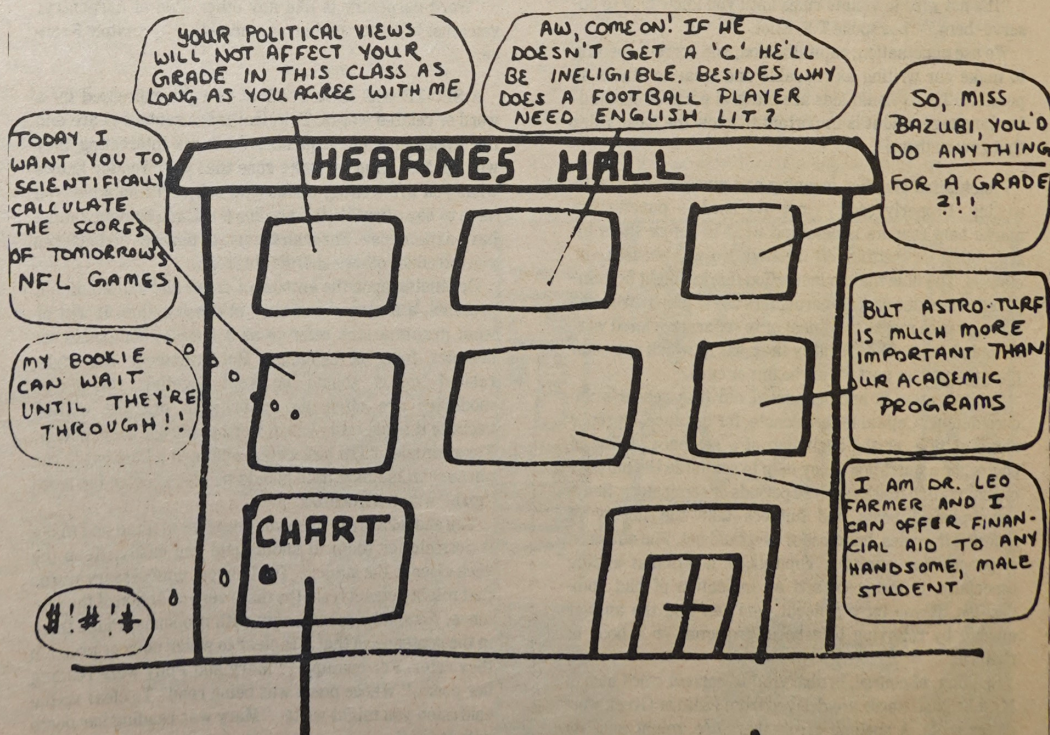 YOUR POLITICAL VIEWS
WILL NOT AFFECT YOUR
GRADE IN THIS CLASS AS
LONG AS YOU AGREE WITH ME
AW, COME ON! IF HE
DOESN'T GET A 'C' HE'LL
BE INELIGIBLE. BESIDES WHY
DOES A FOOTBALL PLAYER
NEED ENGLISH LIT?
SO, MISS
BAZUBI, YOU'D
DO ANYTHING
FOR A GRADE
?!!
TODAY I
WANT YOU TO
SCIENTIFICALLY
CALCULATE
THE SCORES
OF TOMORROW'S
NFL GAMES
HEARNES HALL
MY BOOKIE
CAN WAIT
UNTIL THEY'RE
THROUGH!!
BUT ASTRO-TURF
IS MUCH MORE
IMPORTANT THAN
UR ACADEMIC
PROGRAMS
I AM DR. LEO
FARMER AND I
CAN OFFER FINAN-
CIAL AID TO ANY
HANDSOME, MALE
STUDENT
CHART
#!#!#